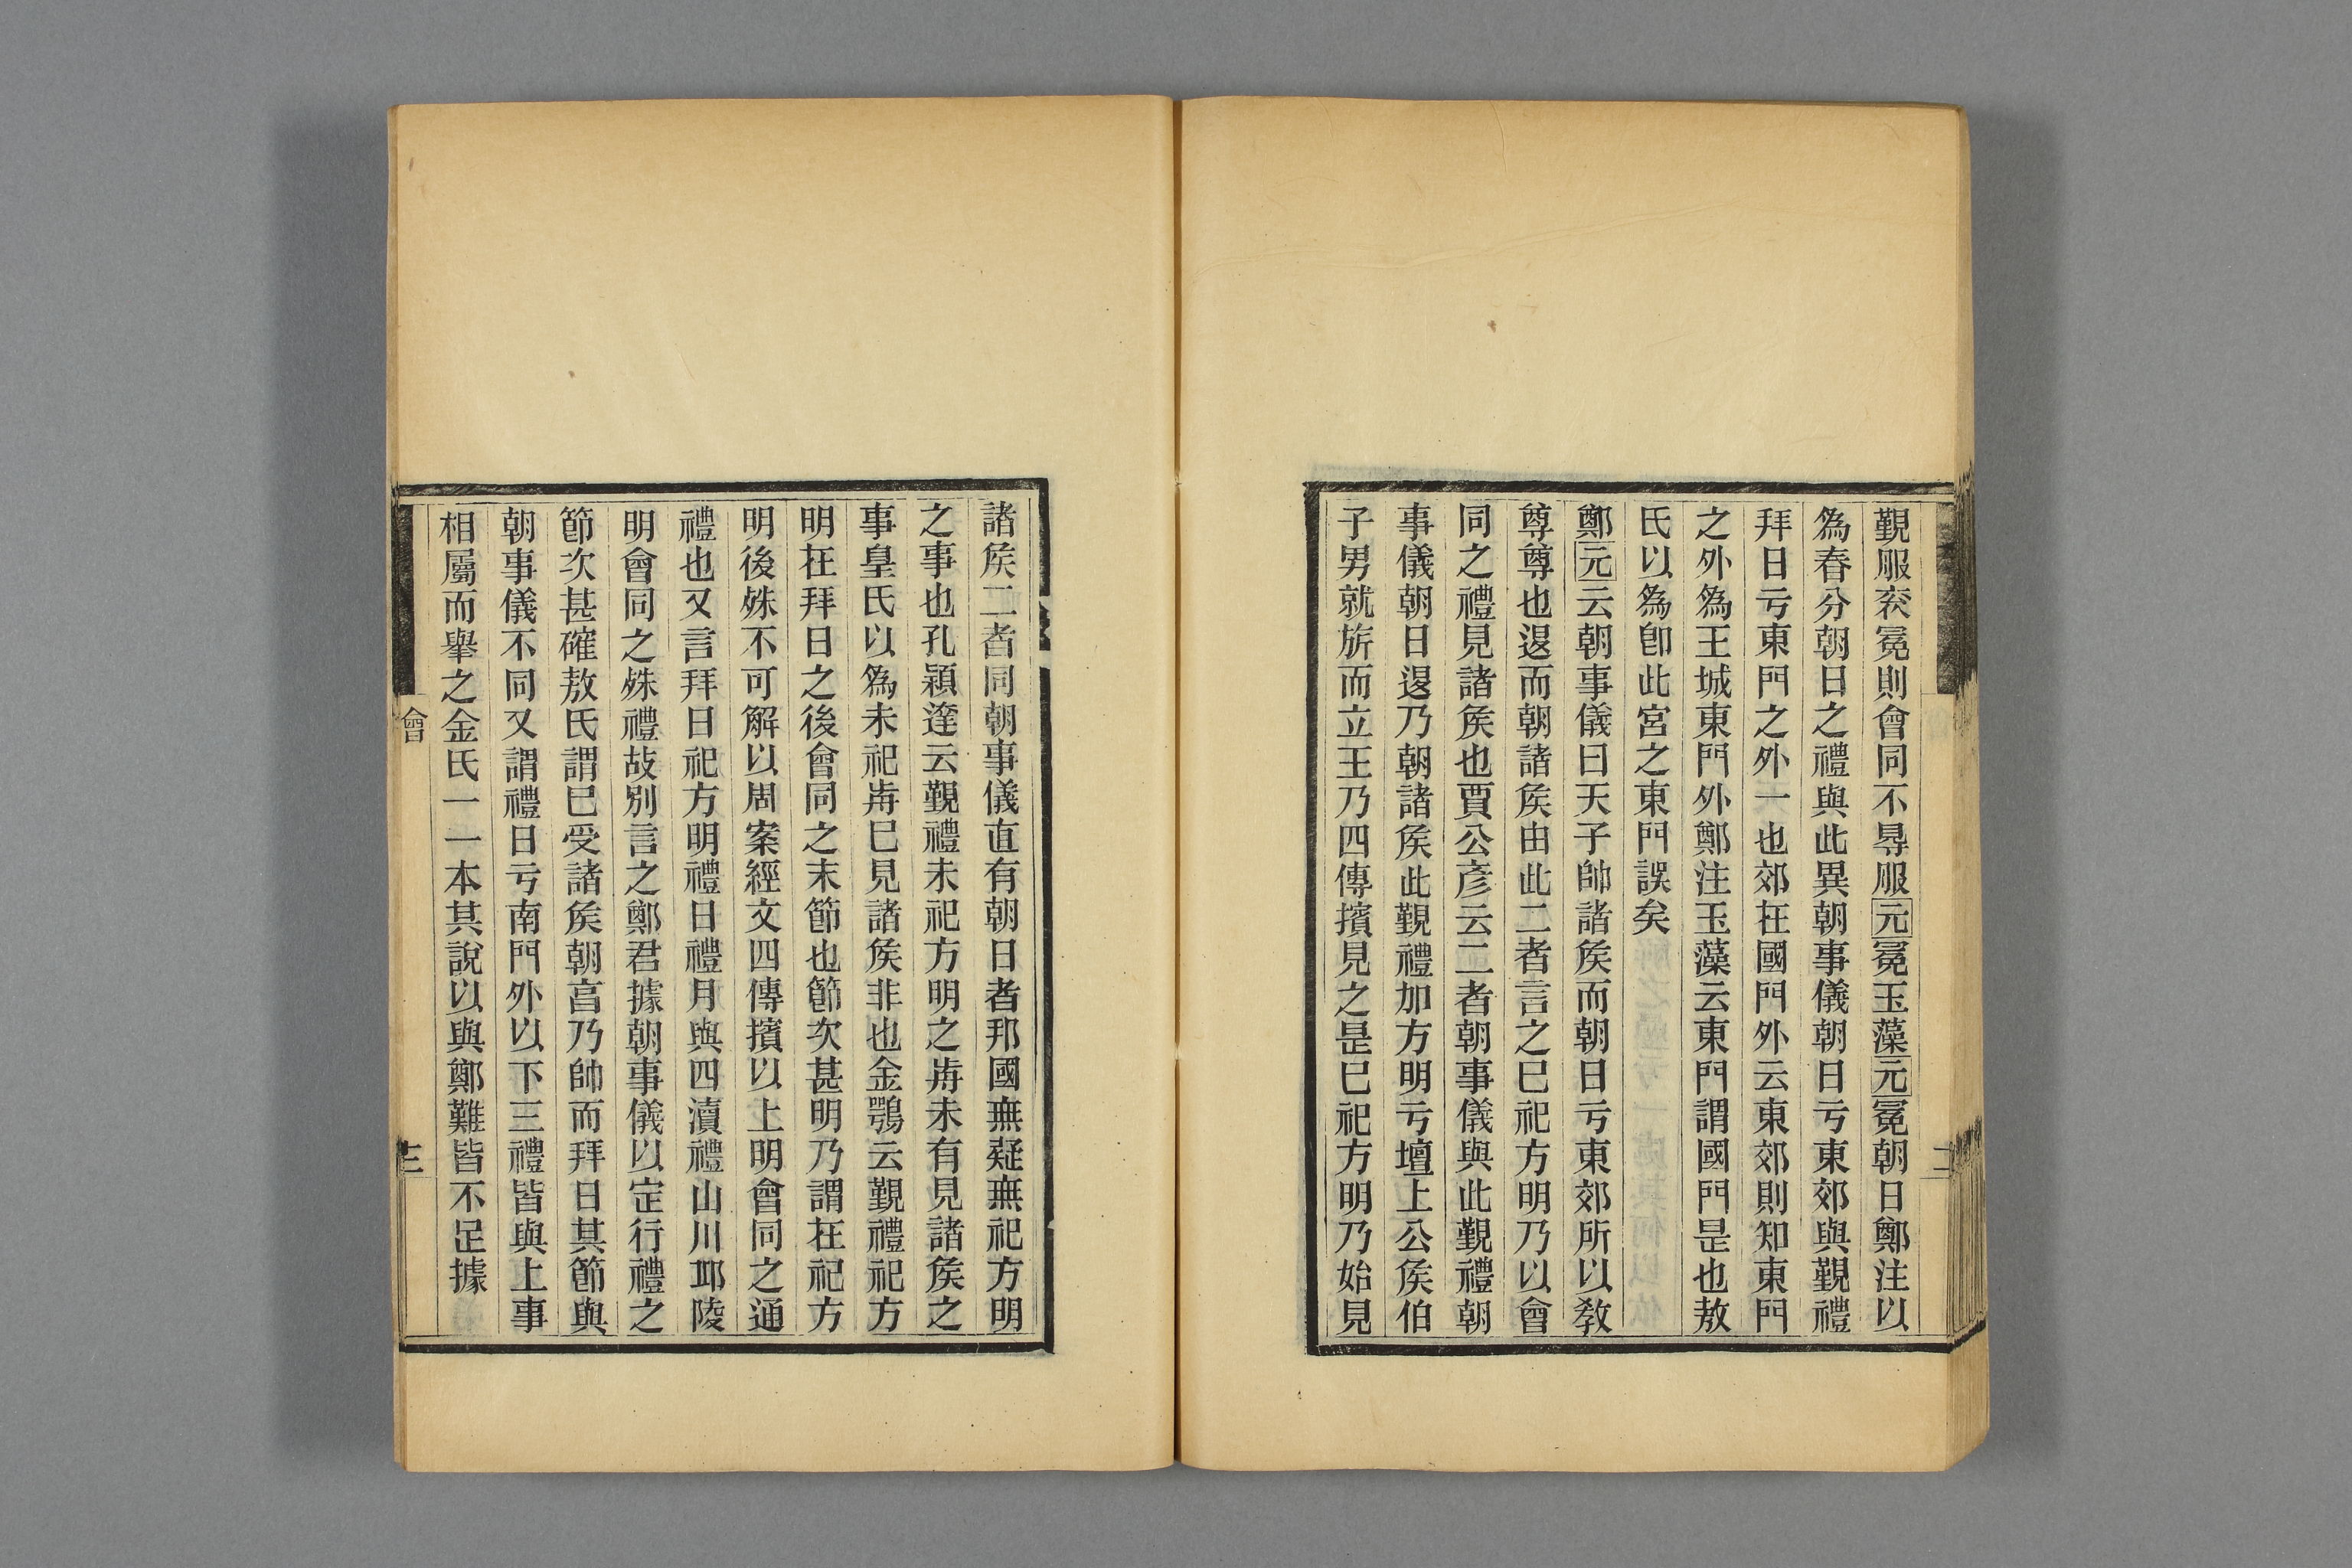 覲服衮冕則會同不㝵服元冕玉藻元冕朝日鄭注以
為春分朝日之禮與此異朝事儀朝日亏東郊與覲禮
拜日亏東門之外一也郊在國門外云東郊則知東門
之外為王城東門外鄭注玉藻云東門謂國門是也敖
氏以為卽此宮之東門誤矣
鄭元云朝事儀曰天子帥諸矦而朝日亏東郊所以敎
尊尊也退而朝諸矦由此二者言之巳祀方明乃以會
同之禮見諸矦也賈公彥云二者朝事儀與此覲禮朝
事儀朝日退乃朝諸矦此覲禮加方明亏壇上公矦伯
子男就旂而立王乃四傳擯見之是巳祀方明乃始見
二
諸矦二者同朝事儀直有朝日者邦國無疑無祀方明
之事也孔穎達云覲禮未祀方明之歬未有見諸矦之
事皇氏以為未祀歬巳見諸矦非也金鶚云覲禮祀方
明在拜日之後會同之末節也節次甚明乃謂在祀方
明後殊不可解以周案經文四傳擯以上明會同之通
禮也又言拜日祀方明禮日禮月與四瀆禮山川丘陵
明會同之殊禮故別言之鄭君據朝事儀以定行禮之
節次甚確敖氏謂巳受諸矦朝亯乃帥而拜日其節與
朝事儀不同又謂禮日亏南門外以下三禮皆與上事
相屬而舉之金氏一一本其說以與鄭難皆不足據
會
三